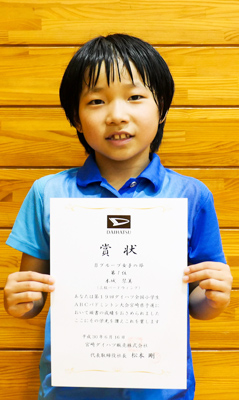 DAIHATSU
賞状
Bグループ女子の部
第1位
あなたは第10回ダイハツ全国小学生
ABCバドミントン大会宮崎県予選に
おいて頭書の成績をおさめられました
ここにその栄光を讃えこれを賞します
平成30年6月16日
宮崎ダイハツ販売株式会社
代表取締役社長 松本 剛